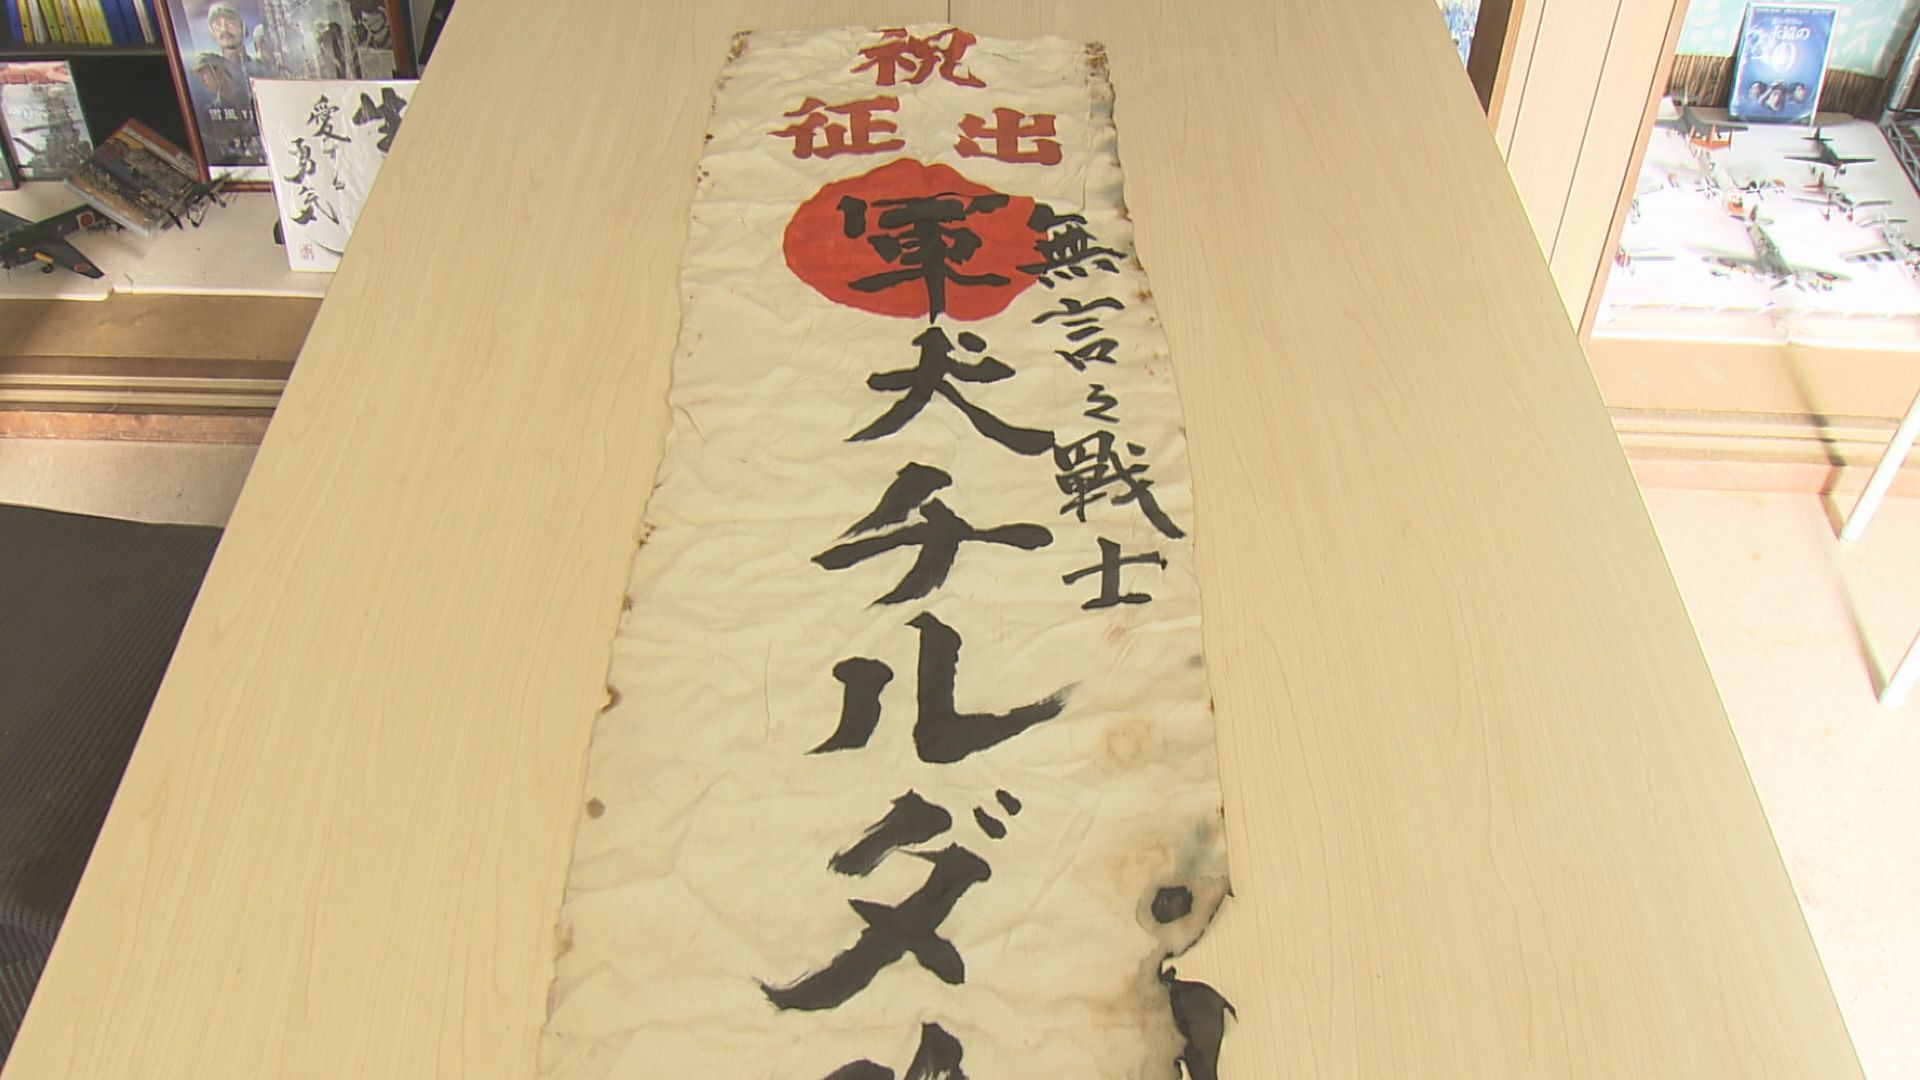 祝
出征
無言之戰士
軍犬チルダ
生
愛する
勇気
雪風
永遠の0